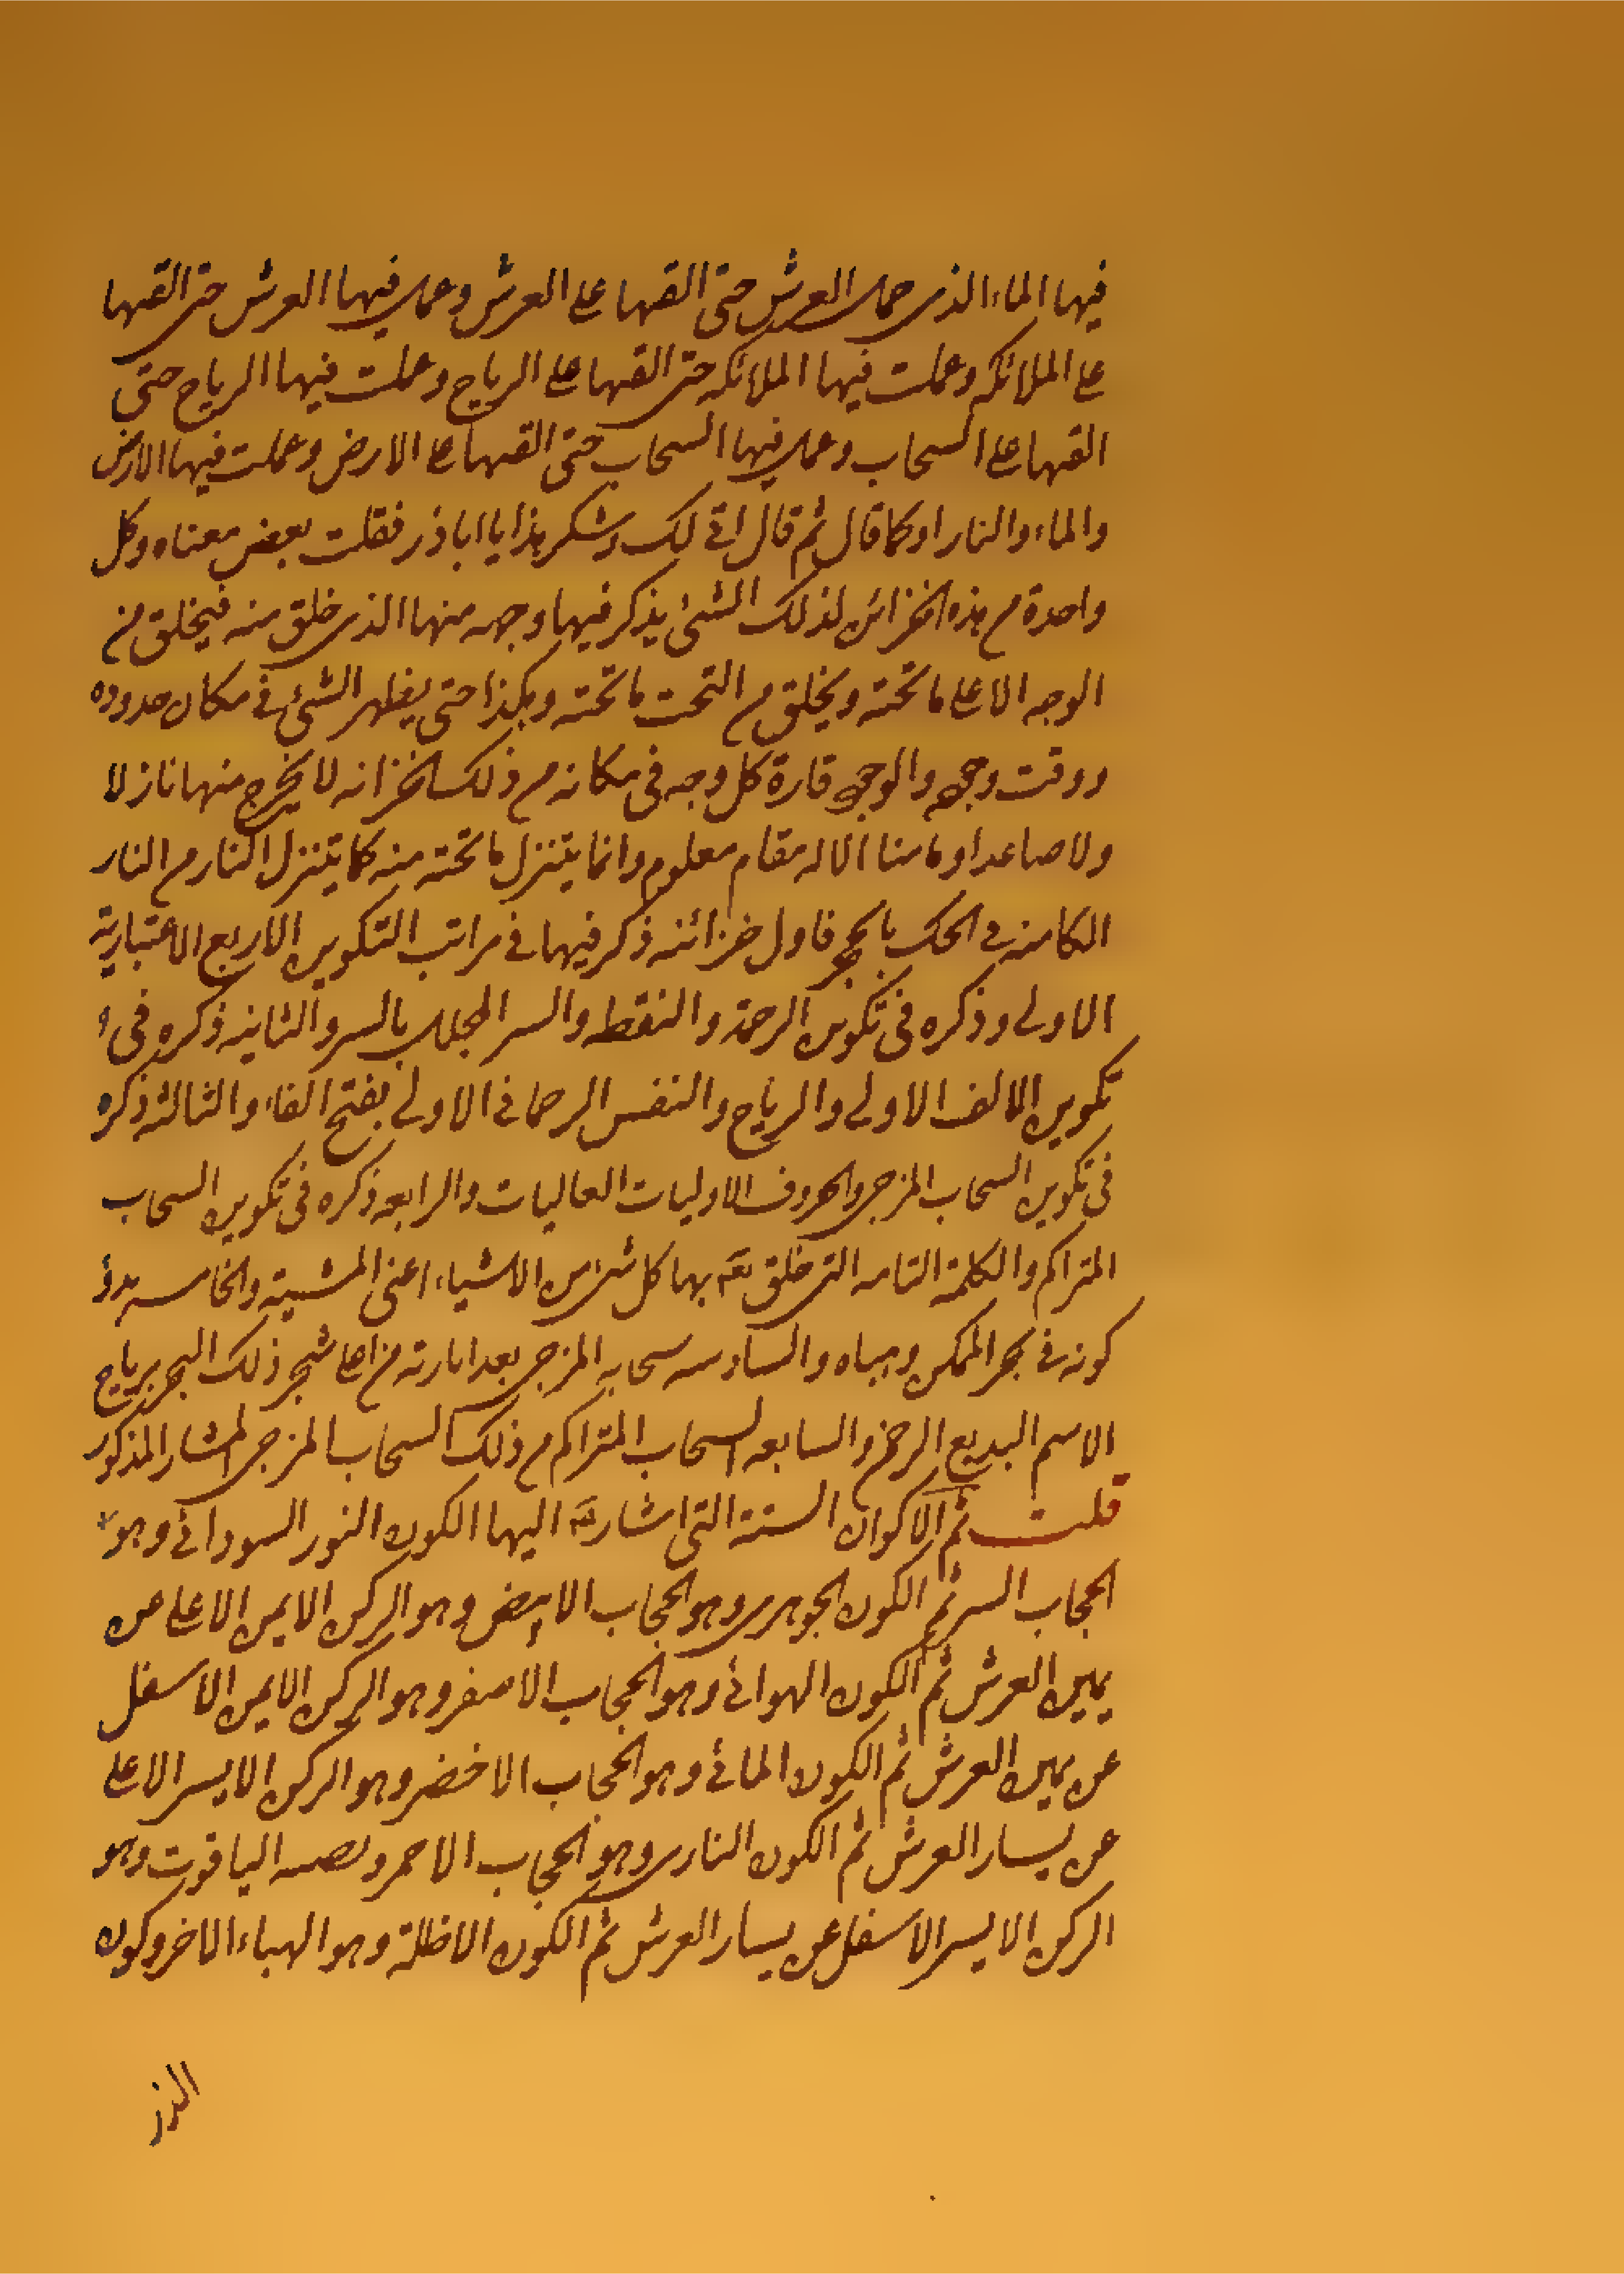 فيها الماء الذى حمل العرش حتى القها على العرش وعمل فيها العرش حتى القها
على الملائكه وعملت فيها الملائكه حتى القها على الرياح وعملت فيها الرياح حتى
القها على السحاب وعمل فيها السحاب حتى القها على الارض وعملت فيها الارض
والماء والنار او كما قال ثم قال انى لك بشكر هذا يا اباذر فقلت بعض معناه وكل
واحدة من هذه الخزائن لذلك الشئ يذكر فيها وجهه منها الذى خلق منه فيخلق من
الوجه الاعلى ما تحته ويخلق من التحت ما تحته وهكذا حتى يظهر الشئ فى مكان حدوده
ووقت وجهه والوجه قارة كل وجه فى مكانه من ذلك الخزانه لا يخرج منها نازلا
ولا صاعدا وما منا الا له مقام معلوم وانما يتنزل ما تحته منه كما يتنزل النار من النار
الكامنه فى الحك بالحجر فاول خزائنه ذكر فيها فى مراتب التكوين الاربع الاعتبارية
الاولى وذكره فى تكوين الرحمة والنقطه والسر المجلل بالسر والثانيه ذكره فى
تكوين الالف الاولى والرياح والنفس الرحمانى الاولى بفتح الفاء والثالثه ذكره
فى تكوين السحاب المزجى والحروف الاوليات العاليات والرابعه ذكره فى تكوين السحاب
المتراكم والكلمة التامه التى خلق الله بها كل شئ من الاشياء اعنى المشية والخامسه بدؤ
كونه فى بحر الممكن ومياه والسادسه سحابه المزجى بعد اثارته من اعلى شجر ذلك البحر برياح
الاسم البديع الرحمن والسابعه السحاب المتراكم من ذلك السحاب المزجى المشار المذكور
قلت ثم الاكوان الستة التى اشار اليها الكون النور السودانى وهو
الحجاب السر ثم الكون الجوهرى وهو الحجاب الابيض وهو الركن الايمن الاعلى عن
يمين العرش ثم الكون الهوائى وهو الحجاب الاصفر وهو الركن الايمن الاسفل
عن يمين العرش ثم الكون المائى وهو الحجاب الاخضر وهو الركن الايسر الاعلى
عن يسار العرش ثم الكون النارى وهو الحجاب الاحمر وقصبه الياقوت وهو
الركن الايسر الاسفل عن يسار العرش ثم الكون الاظلة وهو الهباء الاخر وكون
الذر